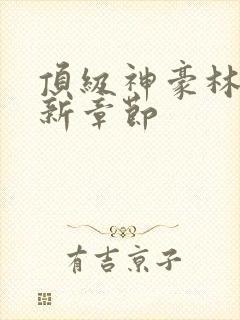 頂級神豪林
新章節
有吉京子